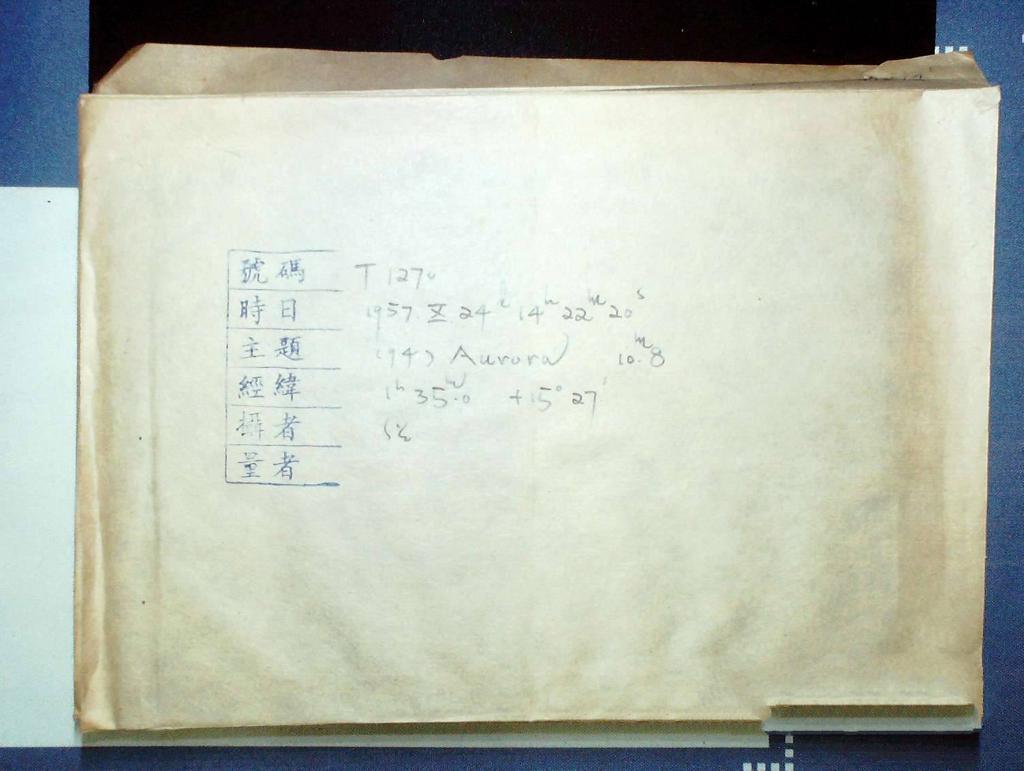 號碼 T 1270
時日 1957 X 24ᵈ 14ʰ 22ᵐ 20ˢ
主題 (94) Aurora 10ᵐ.8
經緯 1ʰ 35ᵐ.0 +15° 27'
攝者
量者